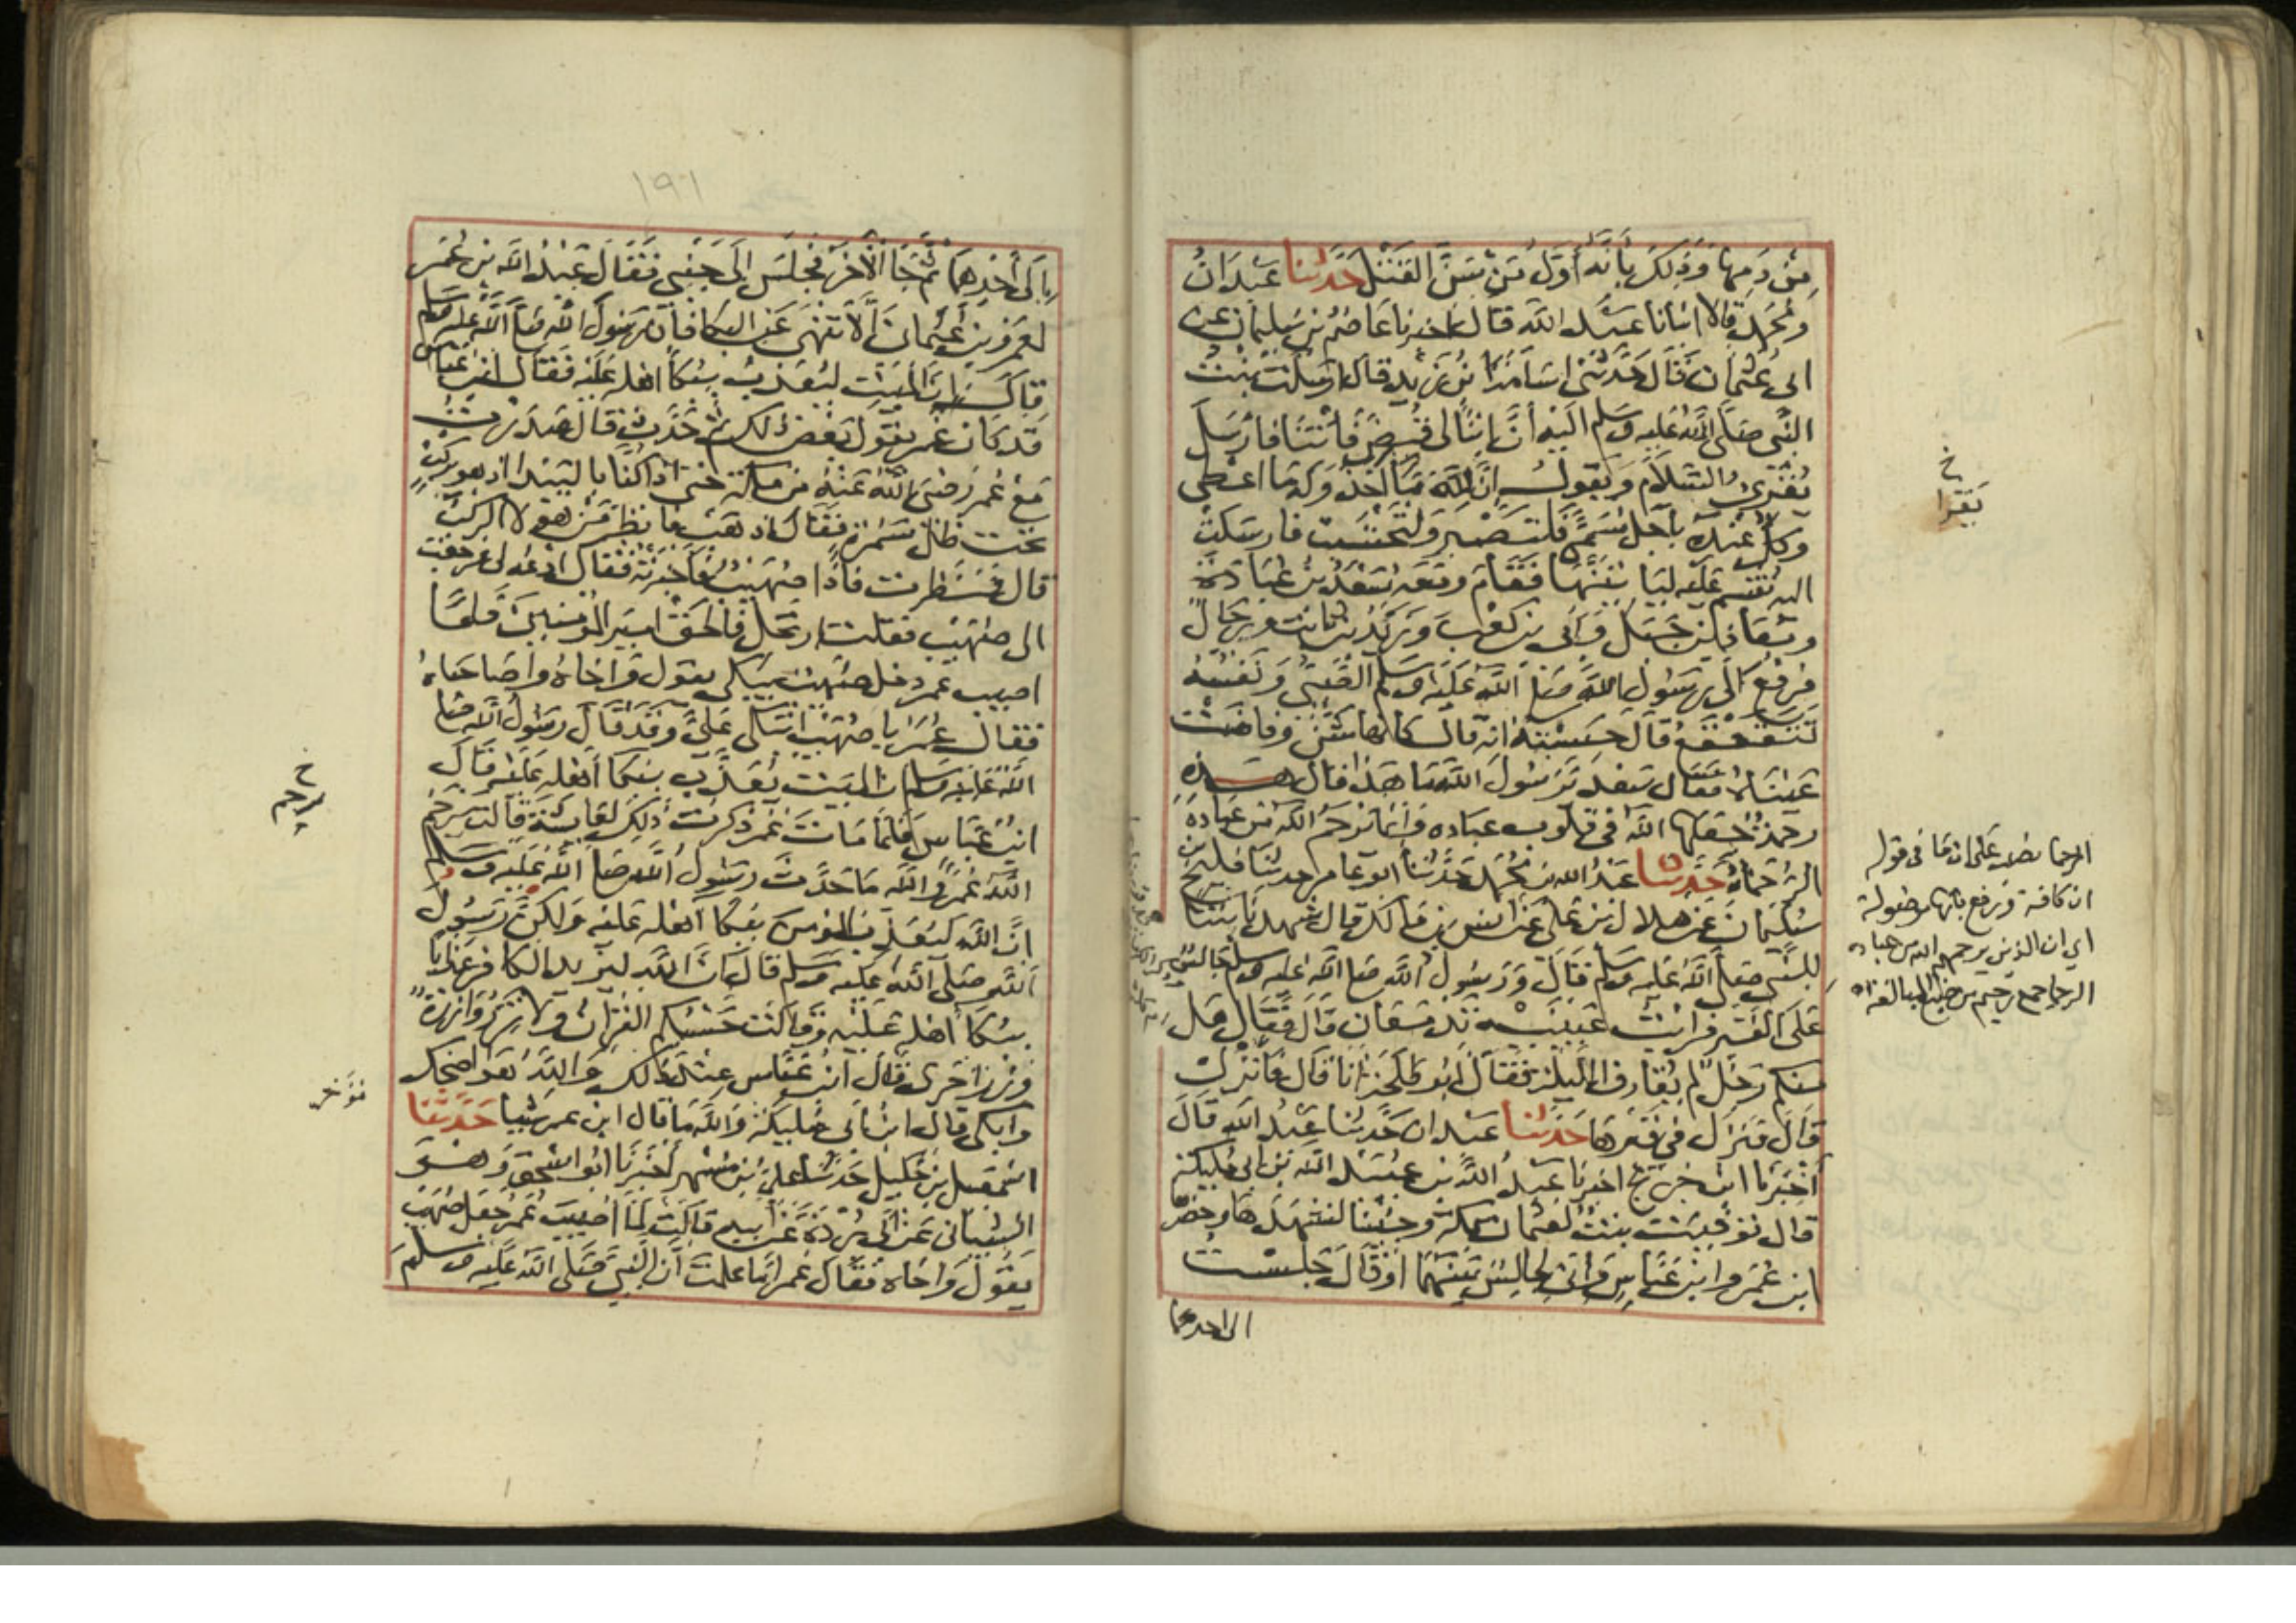 مِن دَمِهَا وَذلِكَ بِأنَّهُ أَوَّلُ مَنْ سَنَّ القَتْلَ حَدَّثَنَا عَبْدَانُ
وَمُحَمَّدٌ قالا انبانا عَبْدُ الله قَالَ اخبرنا عَاصِمُ بن سُلَيمان عن
ابى عُثمان قَالَ حَدَّثَنى اسَامَةُ بْنُ زَيْدٍ قال ارسَلَت بنتُ
النَّبى صَلَّى اللهُ عَلَيه وسَلم اليه أنَّ ابْنًا لى قُبِضَ فَأْتِنَا فارسَلَ
يُقْرئُ السَّلَامَ وَيَقولُ انَّ لِلَّهِ مَا اخذَ وَلَه مَا اعطى
وكلٌّ عِنْدَهُ بأجَلٍ مُسَمًّى فَلتَصْبِر وَلتَحْتَسِبْ فارسَلت
اليه تُقْسِمُ عَلَيه لَيَاتِيَنَّهَا فَقَامَ وَمَعَهُ سَعْدُ بْنُ عُبَادَةَ
ومُعَاذ بنُ جَبَل وَأُبَى بن كَعْب وَزَيْدُ بْنُ ثَابِت وَرِجَالٌ
فَرُفِعَ الَى رَسُول اللهِ صَلى اللهُ عَلَيْه وسَلم الصَّبِىُّ وَنَفْسُهُ
تَتَقَعْقَعُ قَالَ حَسِبْتُهُ انه قال كانها شَنٌّ وَفَاضَتْ
عَيْنَاهُ فقال سَعْدٌ يَا رَسُولَ اللهِ مَا هَذا قال هَذِهِ
رحمَةٌ جَعَلَهَا اللهُ فى قُلُوب عبَاده وَإنمَا يرْحَمُ الله مِن عِبَادِهِ
الرُّحَمَاءَ حَدَّثنَا عَبْدُ الله بن مُحَمَّد حَدَّثَنَا ابُو عَامر حدثنا فُلَيح بن
سُلَيمانَ عَن هلال بن عَلىٍّ عَن انَس بن مَالك قال شَهِدنَا بِنْتًا
لِلنَّبى صَلى اللهُ عَليه وسَلم قَالَ وَرَسُولُ اللهِ صَلى اللهُ عَليه وسلم جالسٌ
عَلَى القَبْر فرأيْتُ عَيْنَيْهِ تَدمَعَان قَالَ فَقَال هَل
منكُم رَجُلٌ لَم يُقَارِفِ اللَّيْلَة فَقَالَ ابُو طَلحَةَ انَا قَالَ فَانْزِل
قَالَ فَنزَلَ فى قَبْرهَا حَدَّثنَا عَبدَان حَدَّثنا عَبْدُ الله قَالَ
أَخْبَرَنَا ابن جُرَيج اخبرنا عَبْدُ اللهِ بن عُبَيْد اللهِ بن ابى مُلَيكة
قال تُوُفّيَتْ بِنْتٌ لعُثمَان بمكة وَجِئْنَا لنشهَدَهَا وحَضَرَ
ابن عُمَرَ وابنُ عَبَّاسٍ وَإنى لجالِسٌ بَيْنَهُمَا اوْ قَالَ جَلَسْتُ
الى احدهما
خ
يَقرا
الرحما نصب على ان ما فى قوله
انما كافة ورفع بانها موصولة
اي ان الذين يرحم الله من عباده
الرحما جمع رحيم من صيغ المبالغة اه
١٩٦
إلى أحَدِهِمَا ثُمَّ جَا الآخَرُ فَجَلسَ الى جَنْبى فَقَالَ عَبْدُ الله بن عُمَرَ
لعَمْرو بن عُثمانَ أَلَا تَنْهَى عَن البُكا فإن رَسُولَ اللهِ صَلى اللهُ عَليه وسَلم
قالَ إنَّ المَيِّتَ ليُعَذَّبُ بِبُكاءِ اهله عَلَيْه فَقَال ابنُ عباس
قَد كَانَ عُمَرُ يَقُولُ بَعْضَ ذلك ثُمَّ حَدَّثَ قَال صَدَرتُ
مَعَ عُمَرَ رَضِىَ اللهُ عَنْهُ مِن مكةَ حَتى اذا كُنَّا بالبَيْدَاءِ اذ هو بركبٍ
تحت ظل سَمُرَةٍ فَقَالَ اذهَبْ فانظر مَنْ هؤلاء الركْبُ
قال فَنَظَرتُ فَاذَا صُهَيْبٌ فَأخبَرتُهُ فَقَال ادعُهُ لى فرجعتُ
الى صُهَيْب فقلتُ ارتَحل فَالحَقْ امِيرَ المُؤمنِينَ فَلمَّا
اصيبَ عُمَرُ دخَل صُهَيْبٌ يَبْكى يقولُ وَاخَاهُ واصَاحبَاهُ
فقالَ عُمَرُ يا صُهَيْبُ اتَبْكى عَلىَّ وقَدْ قَالَ رَسُولُ اللهِ صَلى
اللهُ عَليْه وسَلم ان الميت يُعَذَّبُ بِبَعْضِ بُكَا أَهْلِه عَلَيْهِ قَالَ
ابْنُ عَبَّاسٍ فَلمَّا مَاتَ عُمَرُ ذَكَرتُ ذلِكَ لعَائِشَةَ فَقَالَت يَرْحَمُ
اللهُ عُمَرَ وَاللهِ مَا حَدَّثَ رَسُولُ اللهِ صَلى اللهُ عَليه وسلم
انَّ اللهَ لَيُعَذّبُ المؤمن بِبُكَاءِ أَهْله عَليه وَلكِنَّ رَسُولَ
اللهِ صَلَّى اللهُ عَليه وسَلم قَالَ انَّ اللهَ ليَزيدُ الكافِرَ عَذابًا
بِبُكَاءِ أهْلِهِ عَلَيْه وَقَالَت حَسْبُكُم القُرْآنُ وَلَا تَزِرُ وَازِرَةٌ
وِزرَ اخْرى قَالَ ابْنُ عَبَّاس عِنْدَ ذَلك وَاللهُ هُوَ اضحَك
وَأبكى قَالَ ابْنُ ابى مُليكةَ وَاللهِ مَا قَالَ ابن عمر شيئا حَدَّثنَا
اسْمَعيل بن خَليل حَدثنا عَلىُّ بنُ مُسْهر أَخْبَرَنَا ابُو اسْحٰقَ وَهُوَ
الشَّيْبَانى عَن ابى بُرْدَةَ عَنْ ابيه قَالَ لمَّا أُصيبَ عُمَرُ جَعَلَ صُهَيْبٌ
يَقُولُ وَاخَاهُ فَقَالَ عُمَرُ امَا عَلمتَ أن النَّبىَّ صَلى اللهُ عَليه وسلمَ